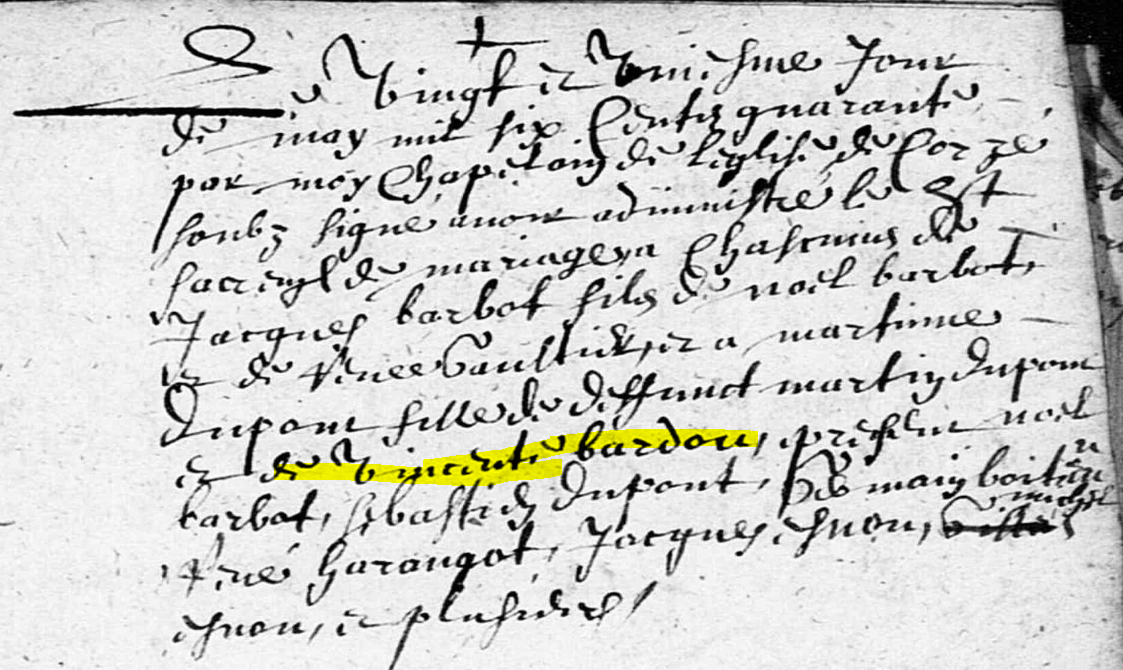 Le vingt et uniesme Jour
de may mil six Centz quarante
par moy Chapelain de leglise de Corze
soubz signé avoir administré le St
sacremt de mariage a Chascuns de
Jacques barbot filz de noel barbot,
et de Renee Vaultier, et a martinne
dupont fille de deffunct martin dupont
et de Vincente bardou, present noel
barbot, sebastien dupont,
René harangot, Jacques esnou, michel
esnou, et plusieurs